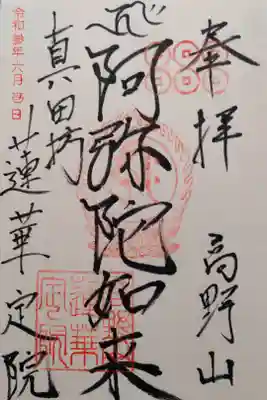 奉拝 高野山
阿弥陀如来
真田坊 蓮華定院
令和
年六月
日